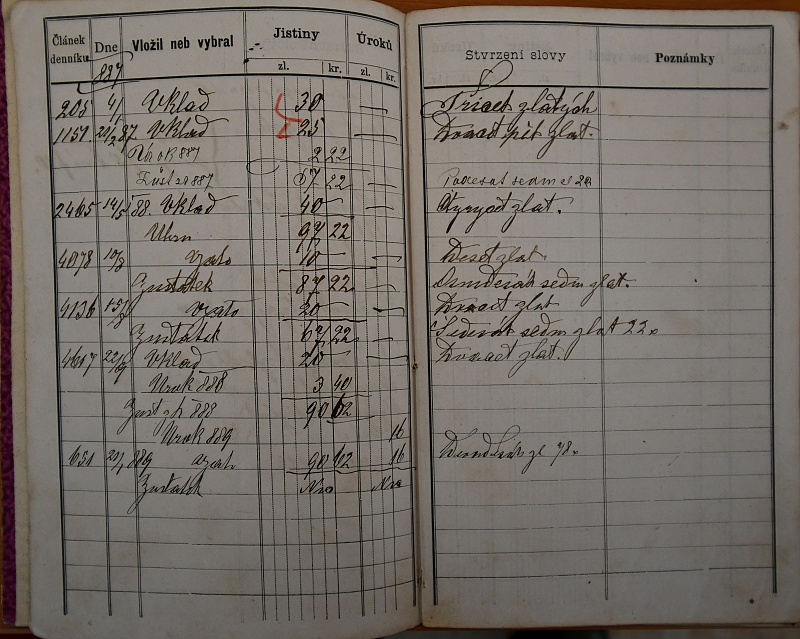 Článek denníku Dne Vložil neb vybral Jistiny Úroků Stvrzení slovy Poznámky
zl. kr. zl. kr.
887
205 4/1 Vklad 30 — Třicet zlatých
1151 20/2 87 Vklad 25 — Dvacet pět zlat.
Úrok 887 2 22
Zůst. 887 57 22 — Padesát sedm zl 22
2405 14/5 88. Vklad 40 — Čtyrycet zlat.
97 22
4078 10/8 vzato 10 — Deset zlat
Zustatek 87 22 — Osmdesát sedm zlat.
4136 15/8 vzato 20 — Dvacet zlat
Zustatek 67 22 — Šedesát sedm zlat 22
4617 22/9 Vklad 20 — Dvacet zlat.
Urok 888 3 40
Zust 888 90 62
Urok 889 16
651 20/1 889 vzato 90 62 16
Zustatek Nic Nic